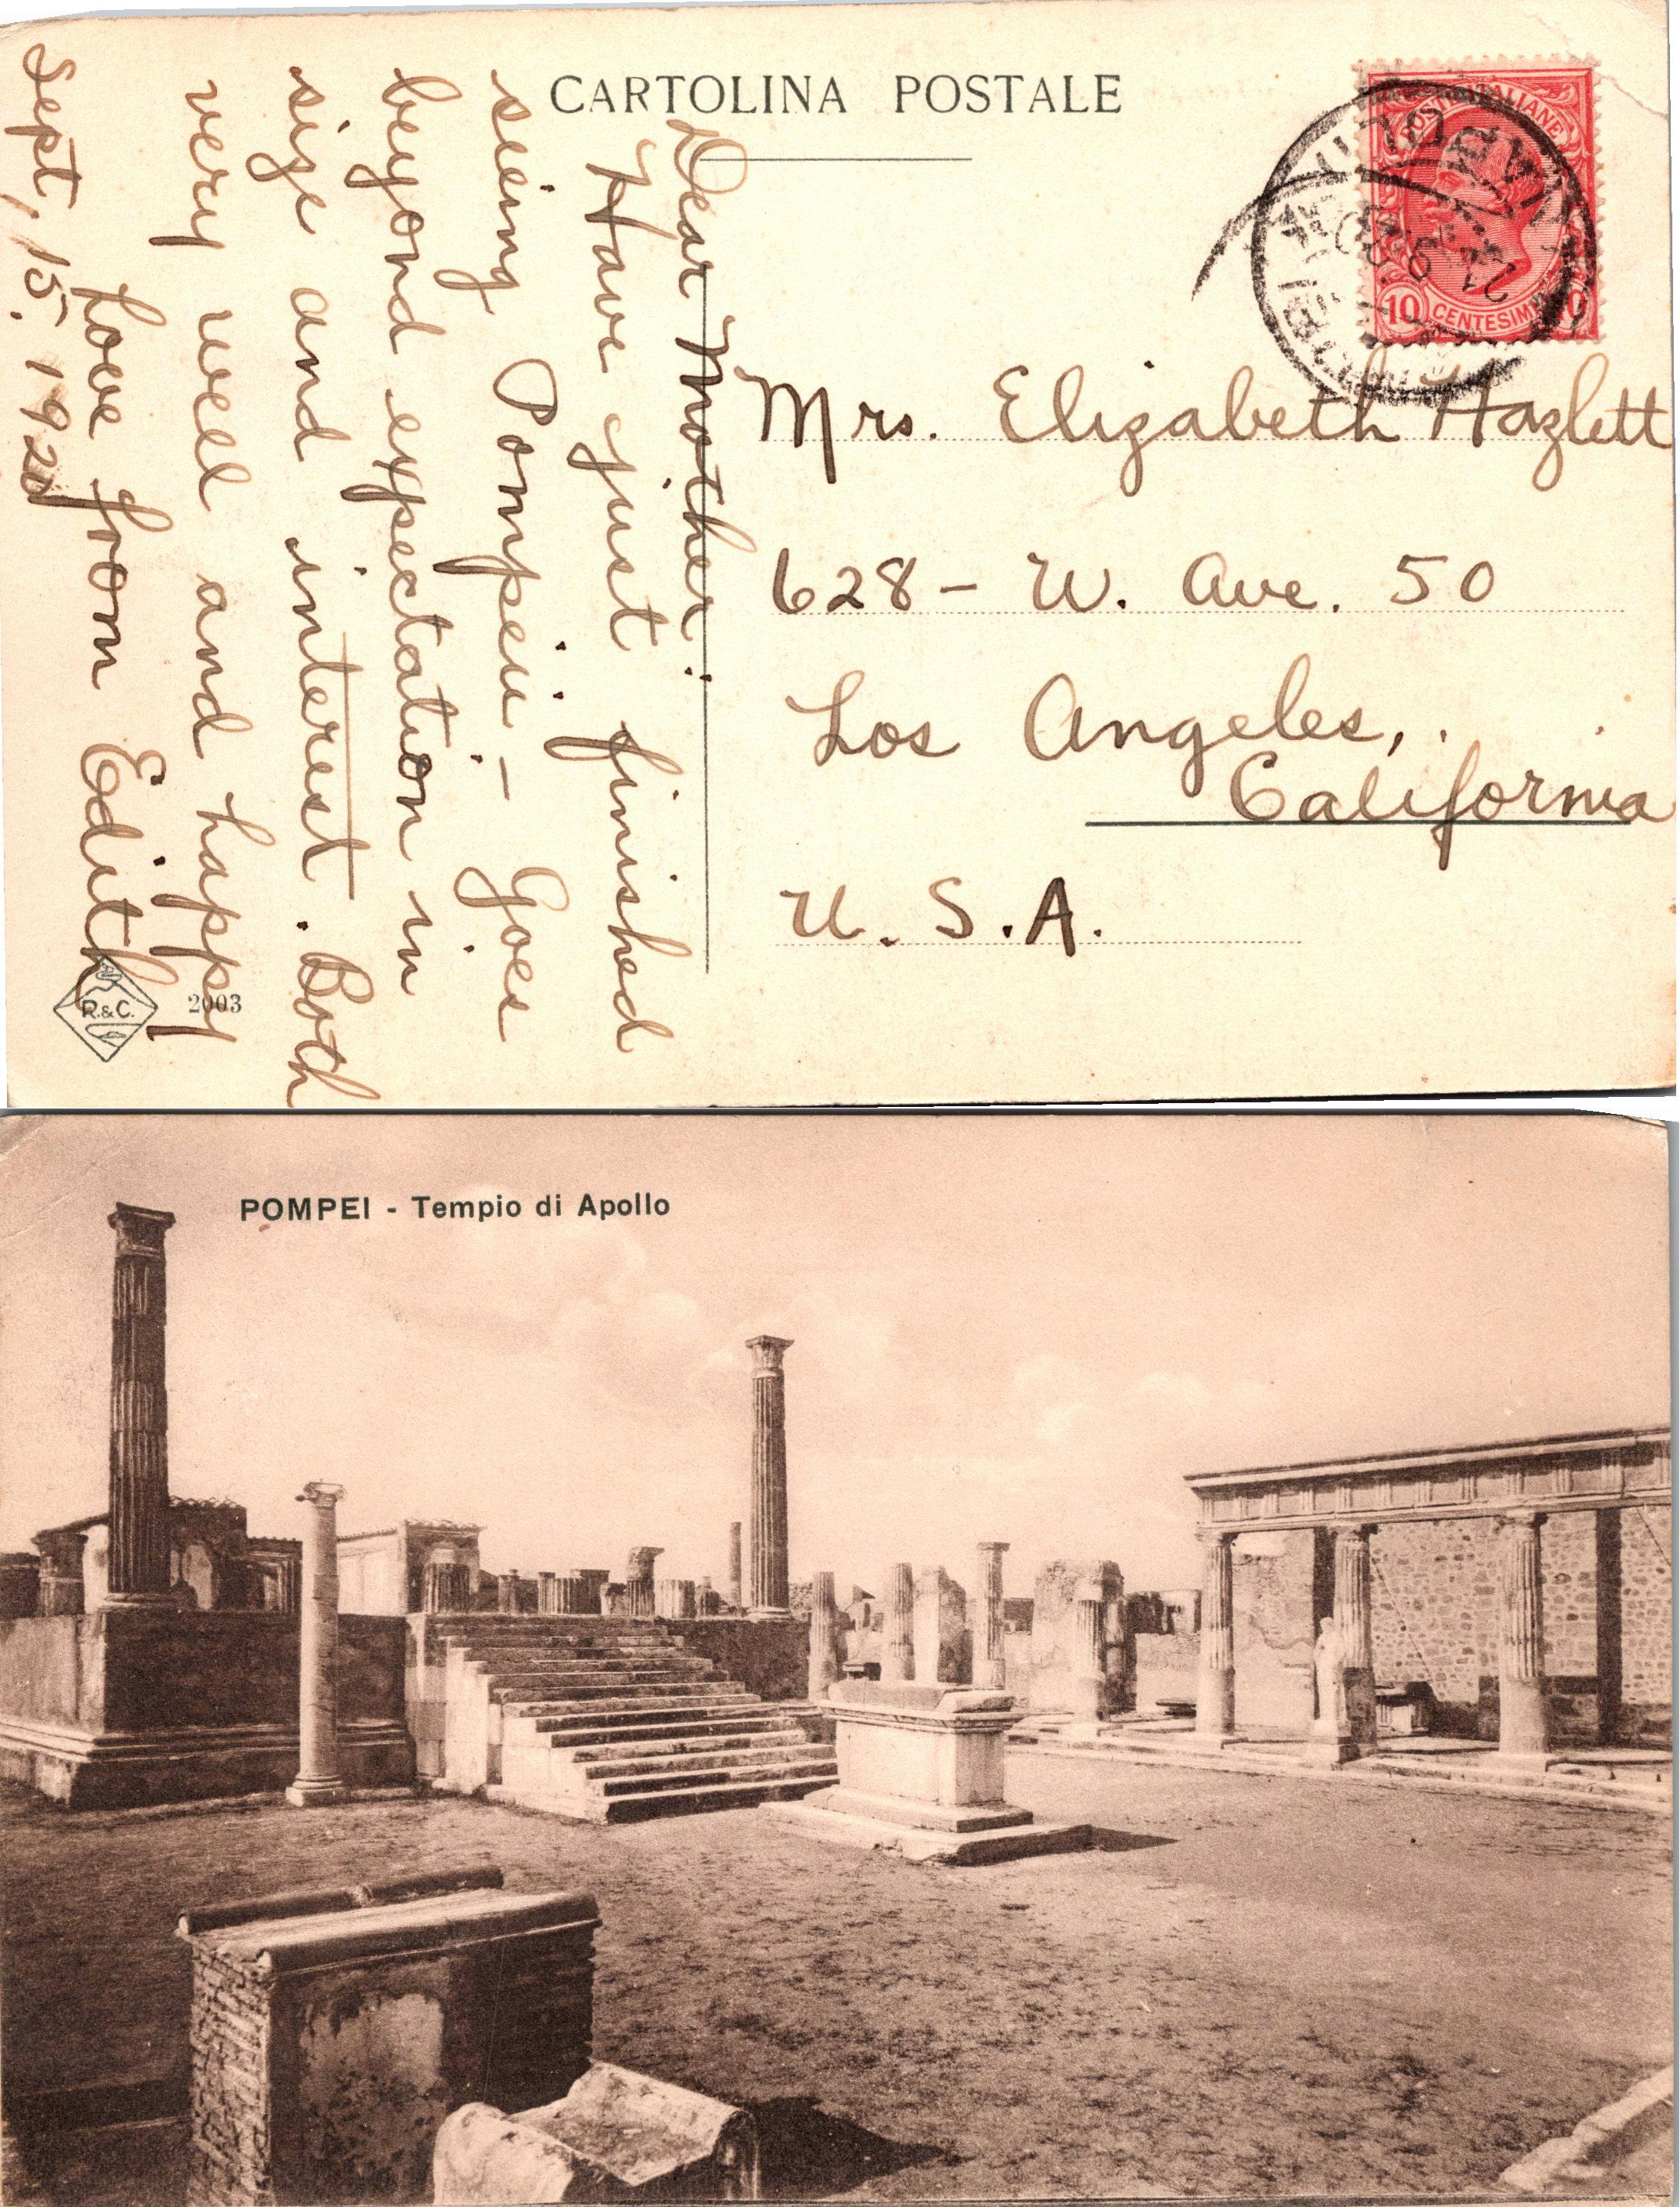 CARTOLINA POSTALE
POSTE ITALIANE
10 CENTESIMI 10
NAPOLI
Dear Mother:
Have just finished
seeing Pompeii – Goes
beyond expectation in
size and interest. Both
very well and happy
Love from Edith
Sept, 15, 1920
Mrs. Elizabeth Hazlett
628 – W. Ave. 50
Los Angeles,
California
U.S.A.
R.&C.
2003
POMPEI - Tempio di Apollo